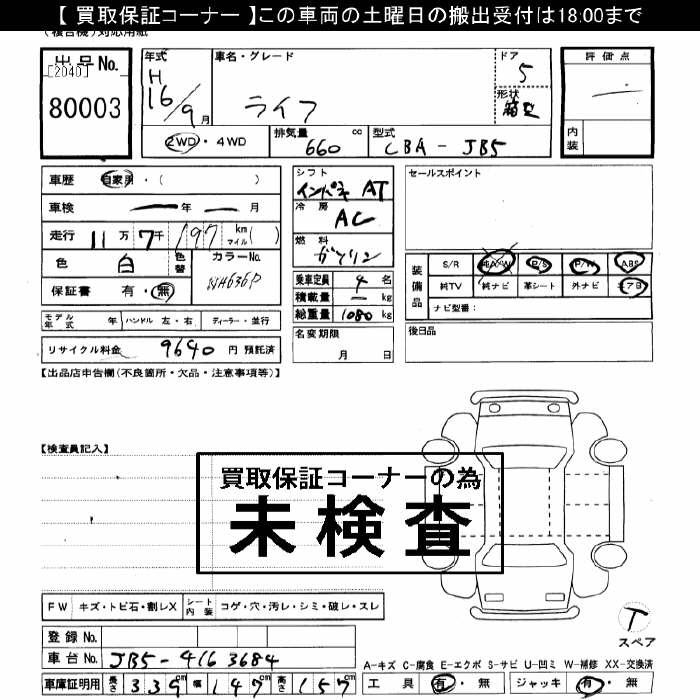 【 買取保証コーナー 】この車両の土曜日の搬出受付は18:00まで
(複合機)対応用紙
出品No.
[2040]
80003
年式
H
16/9月
車名・グレード
ライフ
ドア
5
形状
箱型
評価点
内装
2WD ・ 4WD
排気量
660 cc
型式
CBA - JB5
車歴 自家用・( )
車検 年 月
走行 11万7千197 km マイル( )
色 白
色替
カラーNo.
NH636P
保証書 有・無
モデル年式 年 ハンドル 左・右 ディーラー・並行
リサイクル料金 9640 円 預託済
シフト
インパネ AT
冷房
AC
燃料
ガソリン
乗車定員 4 名
積載量 — kg
総重量 1080 kg
名変期限
月 日
セールスポイント
装備品
S/R 純A/W P/S P/W ABS
純TV 純ナビ 革シート 外ナビ エアB
ナビ型番:
後日品
【出品店申告欄(不良箇所・欠品・注意事項等)】
【検査員記入】
買取保証コーナーの為
未検査
FW キズ・トビ石・割レX シート内装 コゲ・穴・汚レ・シミ・破レ・スレ
登録No.
車台No. JB5-4163684
車庫証明用 長さ 339cm 幅 147cm 高さ 157cm
T
スペア
A-キズ C-腐食 E-エクボ S-サビ U-凹ミ W-補修 XX-交換済
工具 有・無 ジャッキ 有・無